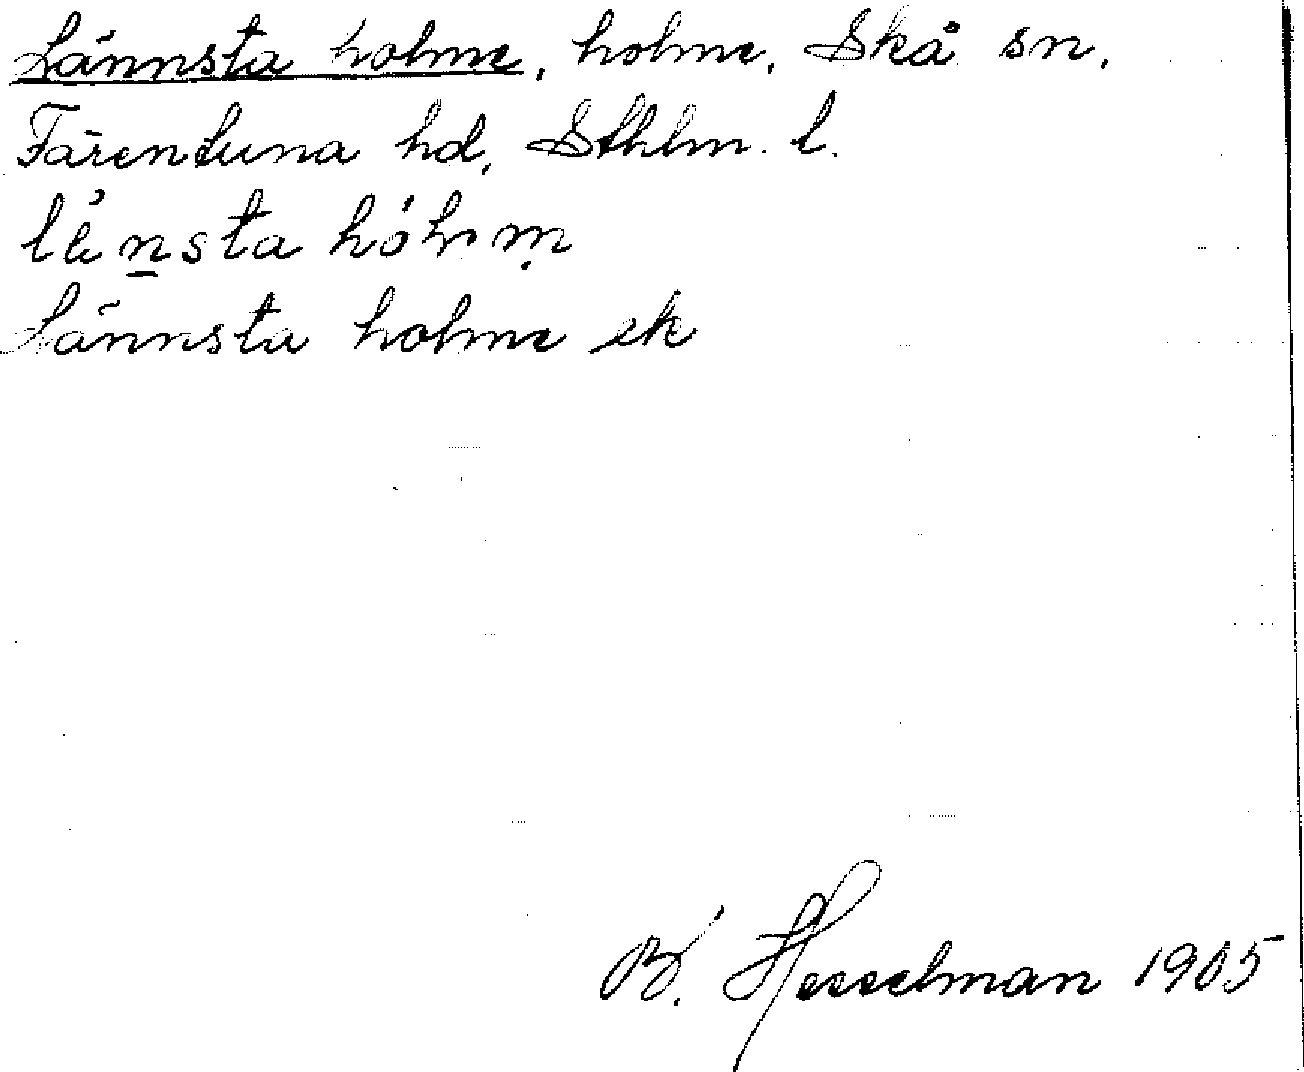 Lännsta holme, holme, Skå sn,
Färentuna hd, Sthlm. l.
Lännsta holme ek
B. Hesselman 1905